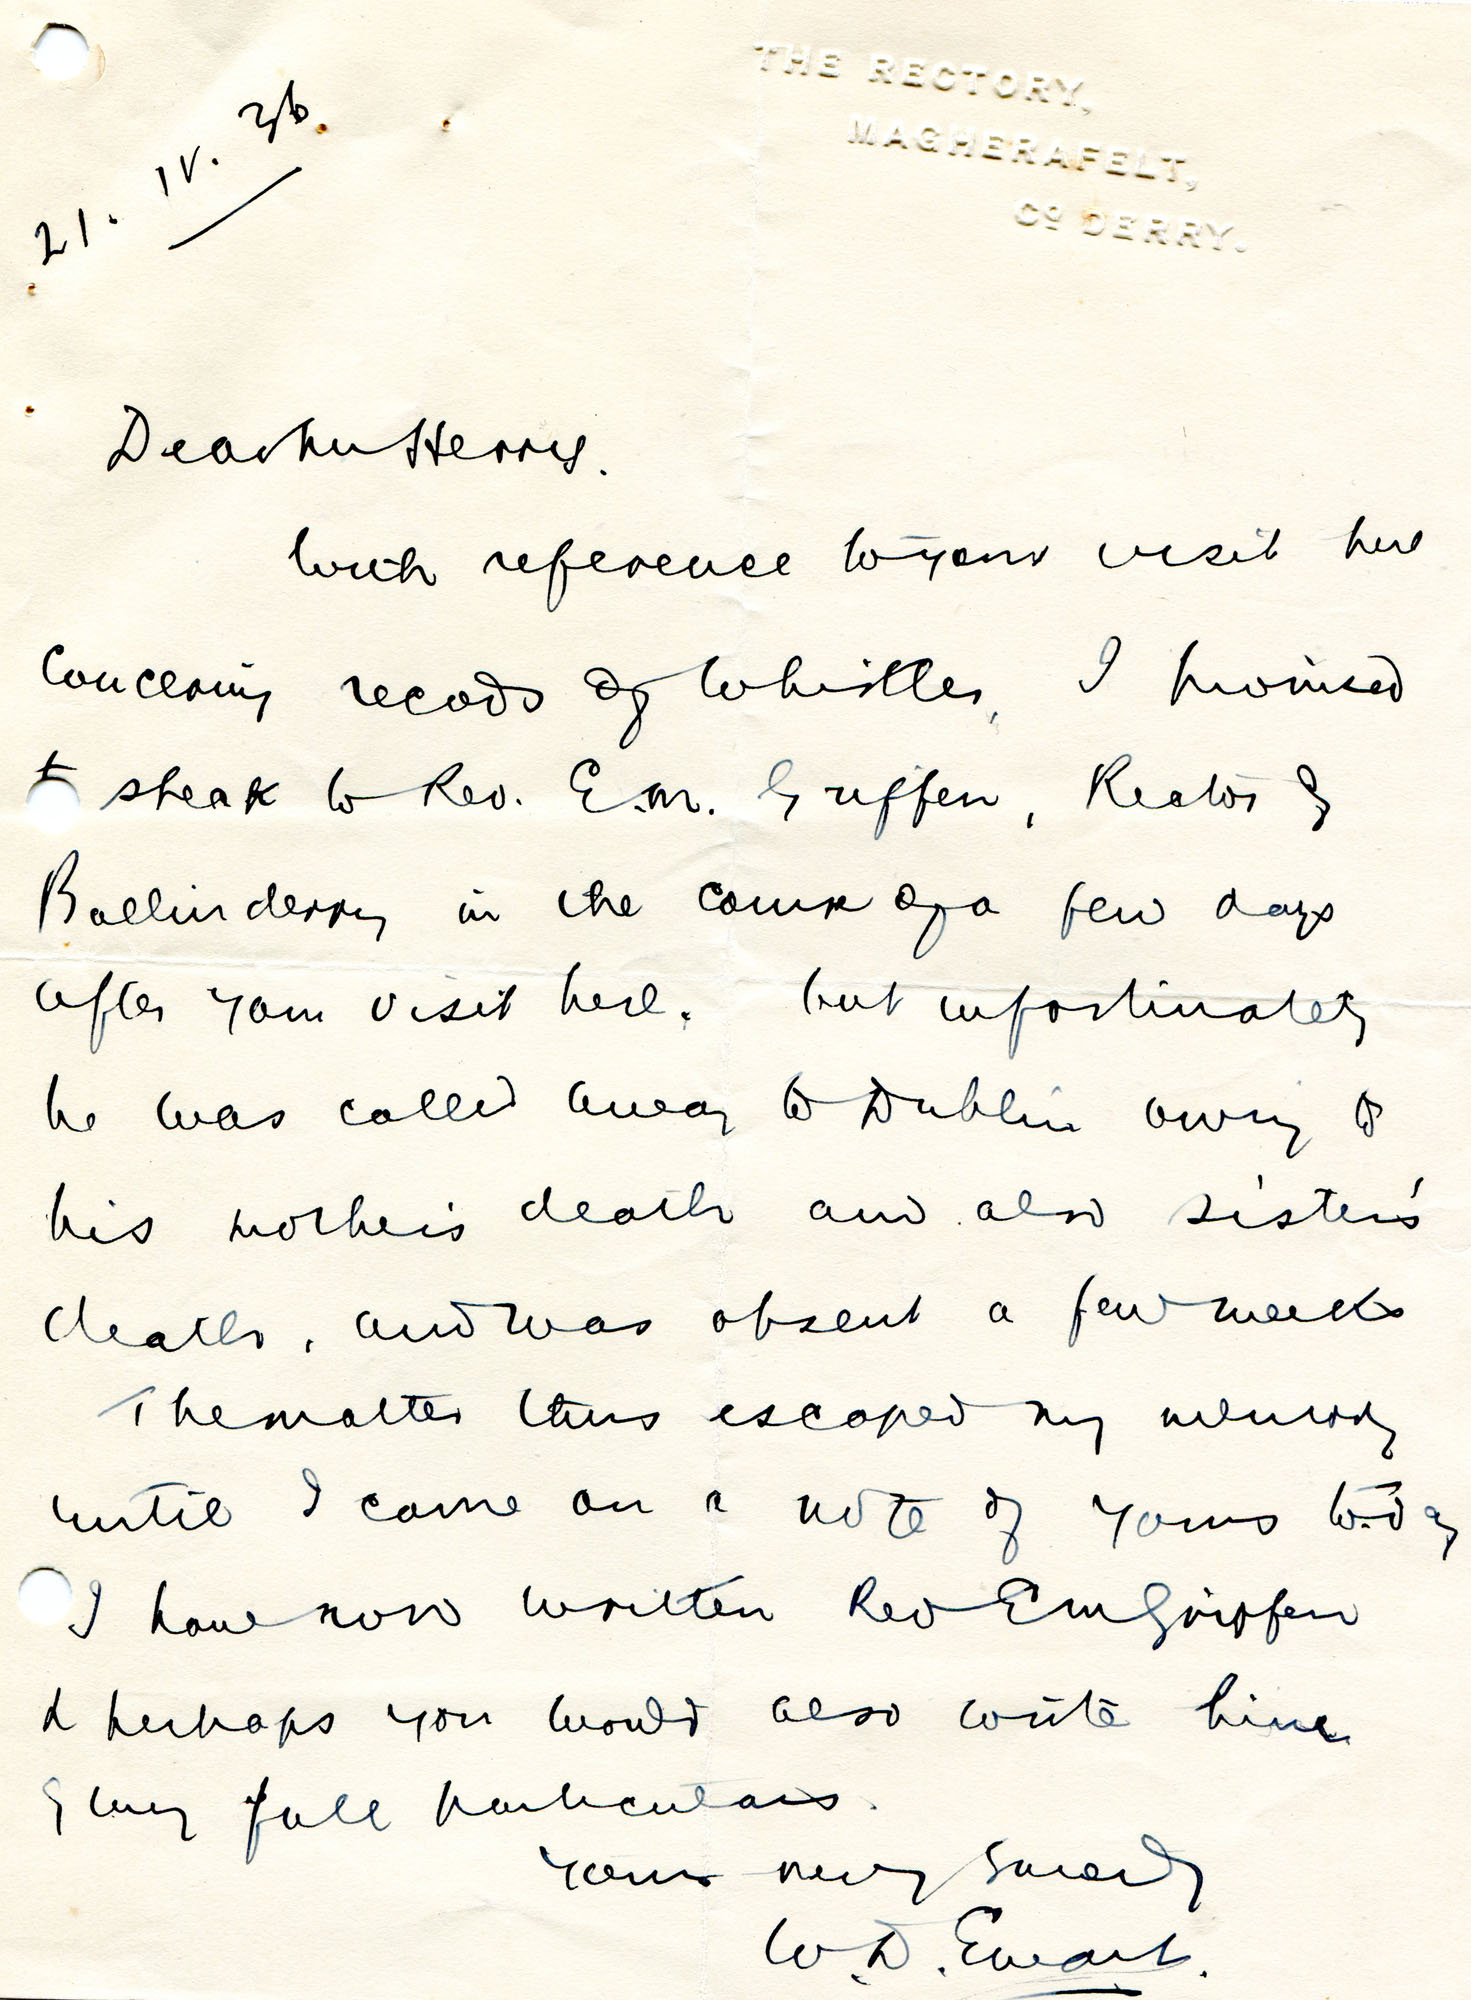 THE RECTORY,
MAGHERAFELT,
Co DERRY.
21. IV. 36.
Dear Mr Henry.
With reference to your visit here
concerning records of Whistler, I promised
to speak to Rev. E.M. Griffen, Rector of
Ballinderry in the course of a few days
after your visit here. but unfortunately
he was called away to Dublin owing to
his mother's death and also sister's
death, and was absent a few weeks
The matter thus escaped my memory
until I came on a note of yours to-day
I have now written Rev E M Griffen
& perhaps you would also write him
giving full particulars.
Yours very sincerely
W. D. Ewart.